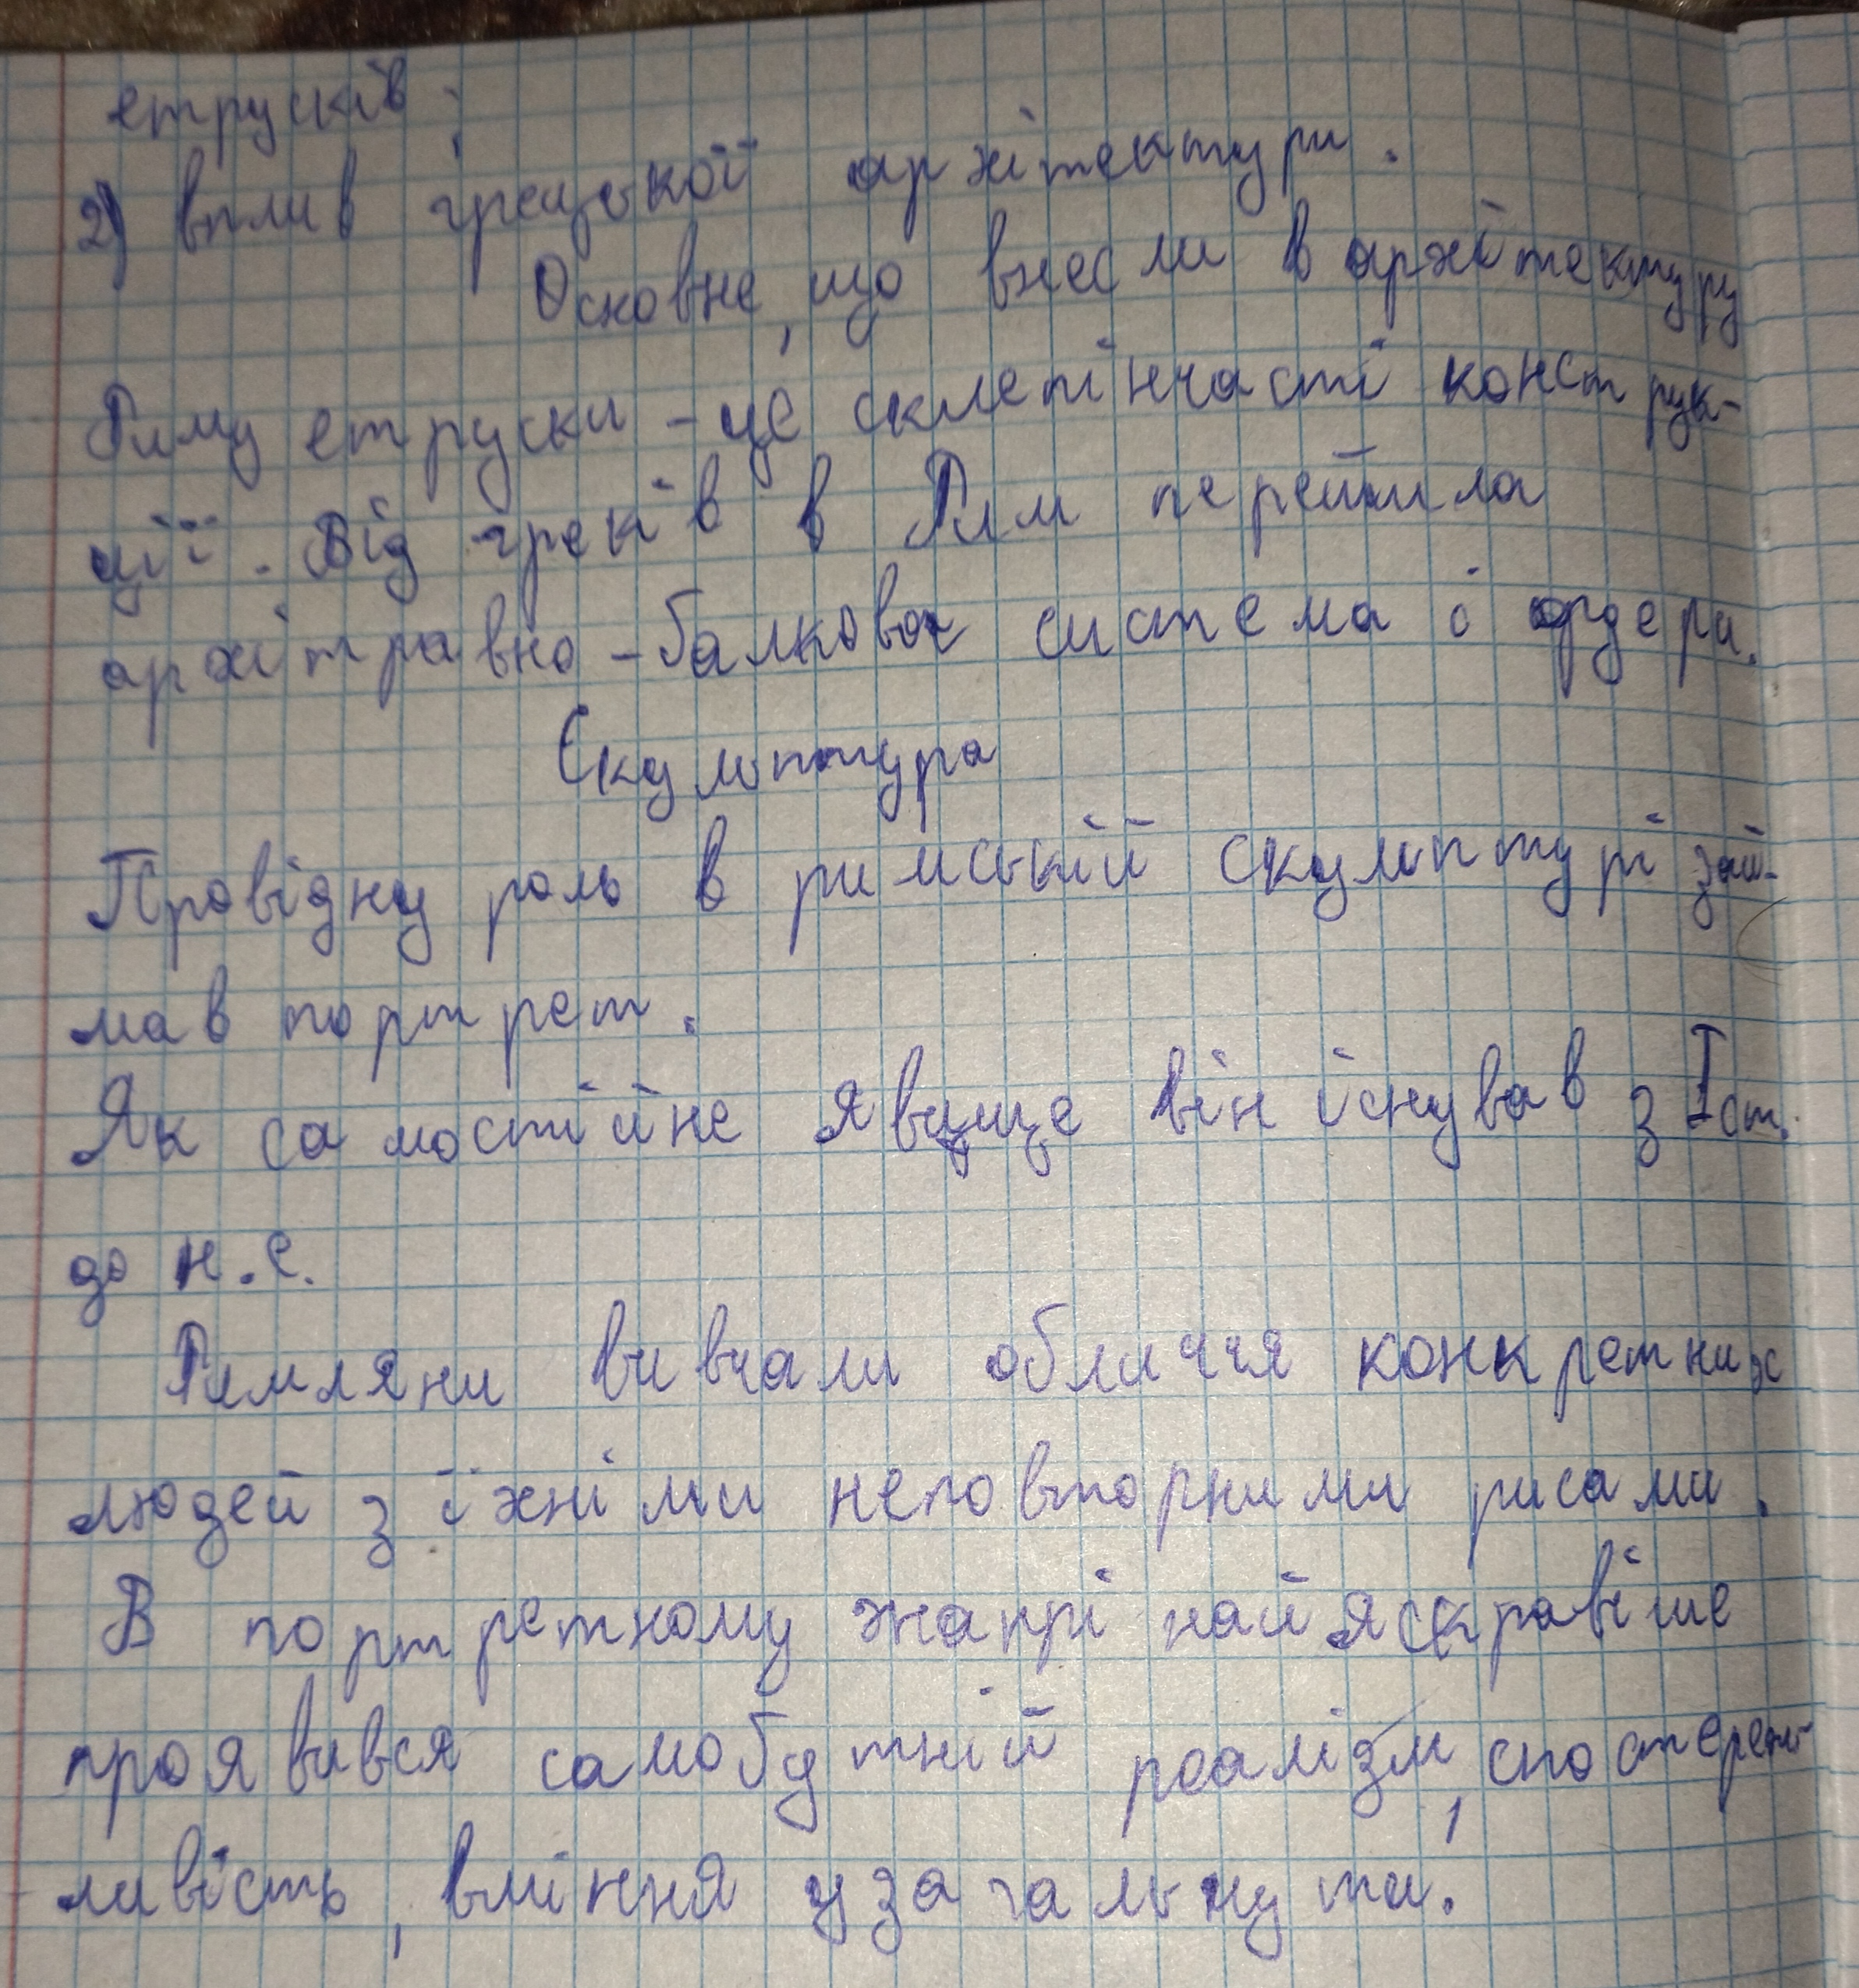 етрусків;
2) вплив грецької архітектури.
Основне, що внесли в архітектуру
Риму етруски - це склепінчасті конструк-
ції. Від греків в Рим перейшла
архітравно-балкова система і ордери.
Скульптура
Провідну роль в римській скульптурі зай-
мав портрет.
Як самостійне явище він існував з I ст.
до н.е.
Римляни вивчали обличчя конкретних
людей з їхніми неповторними рисами.
В портретному жанрі найяскравіше
проявився самобутній реалізм, спостереж-
ливість, вміння узагальнути.